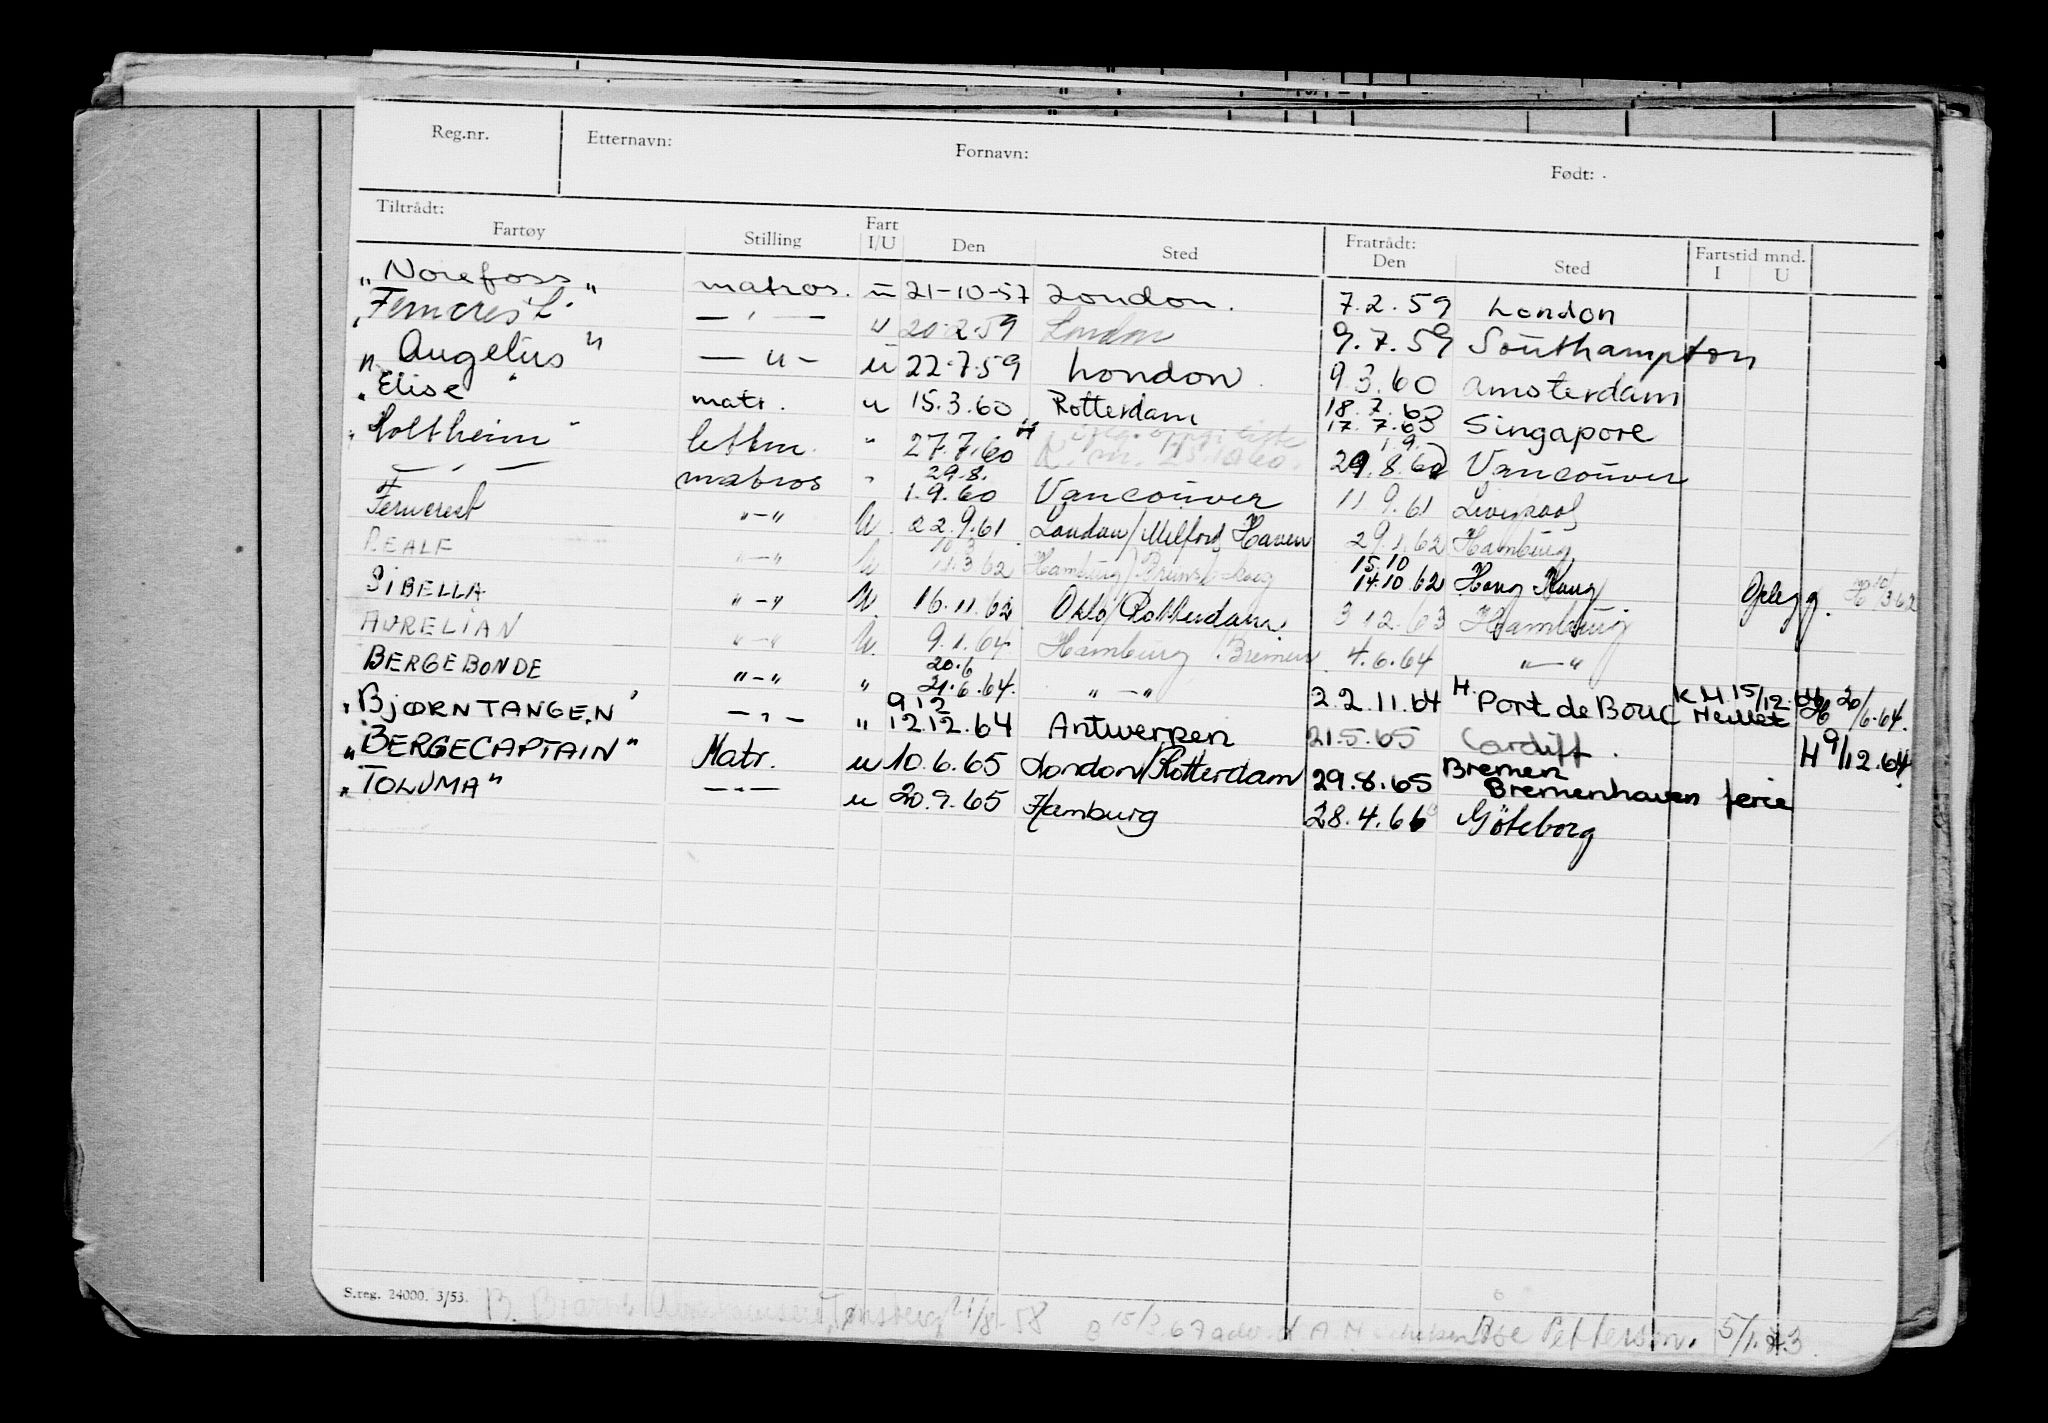 Reg.nr. Etternavn: Fornavn: Født:
Tiltrådt: Fartøy Stilling Fart I/U Den Sted Fratrådt: Den Sted Fartstid mnd. I U
"Norefoss" matros. u 21-10-57 London. 7.2.59 London
"Ferncrest" — " — u 20.2.59 London 9.7.59 Southampton
"Angelus" — " — u 22.7.59 London 9.3.60 Amsterdam
"Elise" matr. u 15.3.60 Rotterdam 18.7.60 17.7.60 Singapore
"Holtheim" lettm. " 27.7.60 1.9. 29.8.60 Vancouver
— " — matros " 29.8. 1.9.60 Vancouver 11.9.61 Liverpool
Ferncrest "-" U. 22.9.61 London/Milford Haven 29.1.62 Hamburg
REALF "-" U 11.3.62 Hamburg/ 15.10 14.10.62 Hong Kong Opplegg.
SIBELLA "-" U. 16.11.62 Oslo/Rotterdam. 3.12.63 Hamburg
AURELIAN "-" U. 9.1.64. Hamburg/Bremen. 4.6.64 "-"
BERGEBONDE "-" " 20.6 21.6.64. "-" 22.11.64 H. Port de Bouc K.H 15/12.64 Hellet H 20/6-64.
"BJØRNTANGEN" - " - " 9.12 12.12.64 Antwerpen 21.5.65 Cardiff. H 9/12.64
"BERGECAPTAIN" Matr. u 10.6.65 London/Rotterdam 29.8.65 Bremen Bremenhaven ferie
"TOLUMA" — " — u 20.9.65 Hamburg 28.4.66 Göteborg
S.reg. 24000. 3/53. B. Tønsberg 21/8-58 B 15/3.67 adv. Petterson. 5/1.73.